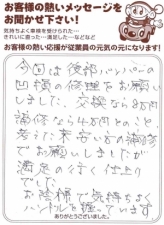 お客様の熱いメッセージを
お聞かせ下さい!
気持ちよく車検を受けられた…
きれいに直った…満足した…などなど
お客様の熱い応援が従業員の元気の元になります!
今回は後部バンパーの
凹損の修理をお願い
しました。交換なら8万円
補修なら4万円とのこと
で
でしたが
満足の行く仕上り
でした。
お陰様で気持ちよく
ハンドルを握っています
ありがとうございました。